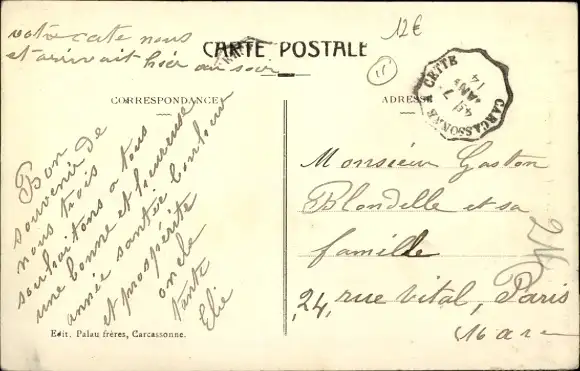 votre carte nous
et arrivait hier au soir
12€
CARTE POSTALE
15
CORRESPONDANCE
ADRESSE
CETTE
CARCASSONNE
7
JANV
14
Bon
souvenir de
nous trois
souhaitons a tous
une bonne et heureuse
année santée bonheur
et prospérité
oncle
tante
Elie
Monsieur Gaston
Blondelle et sa
famille
24, rue Vital, Paris
16 arr
Edit. Palau frères, Carcassonne.